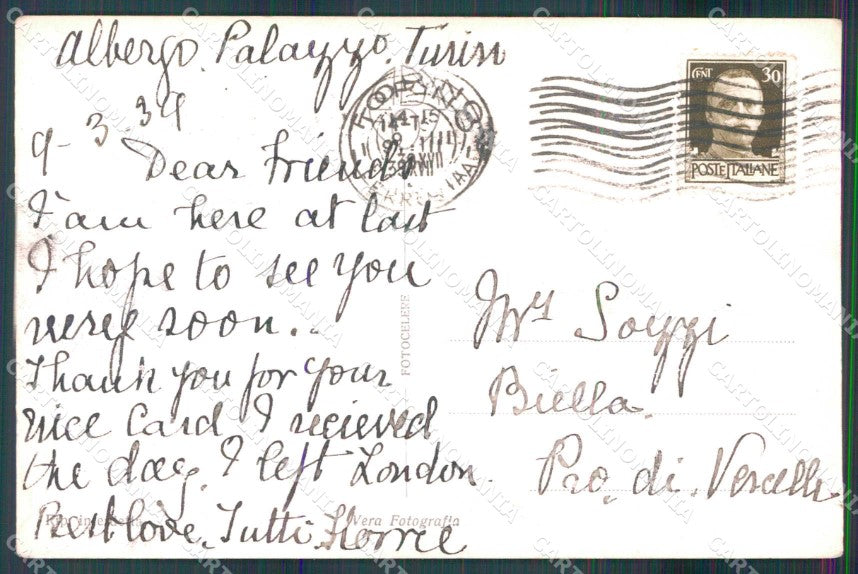 Albergo. Palazzo. Turin
9-3.39
Dear Friends
I am here at last
I hope to see you
verey soon..
Thank you for your
nice Card I recieved
the day. I left London.
Best love. Tutti
Mrs Sozzi
Biella.
Pro. di. Vercelli
CENT 30
POSTE ITALIANE
TORINO
FERROVIA
FOTOCELERE
Vera Fotografia
CARTOLINOMANIA